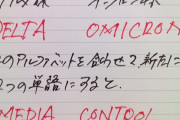 DELTA OMICRON
のアルファベットを合わせて、新たに
2つの単語にすると、
MEDIA CONTOOL